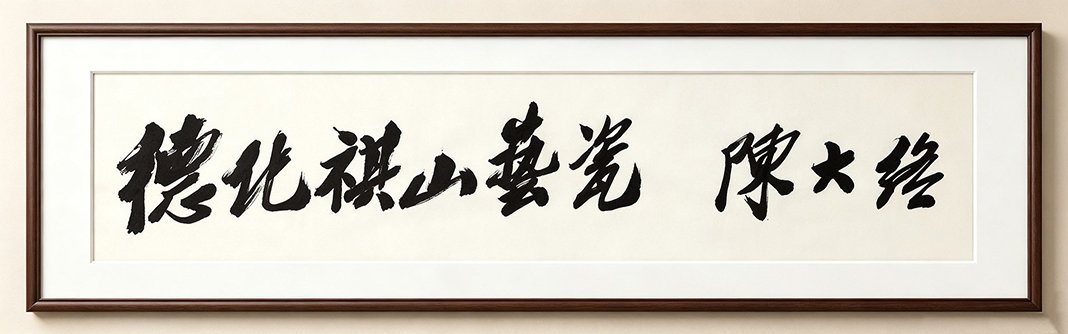 德化祺山藝瓷 陳大終